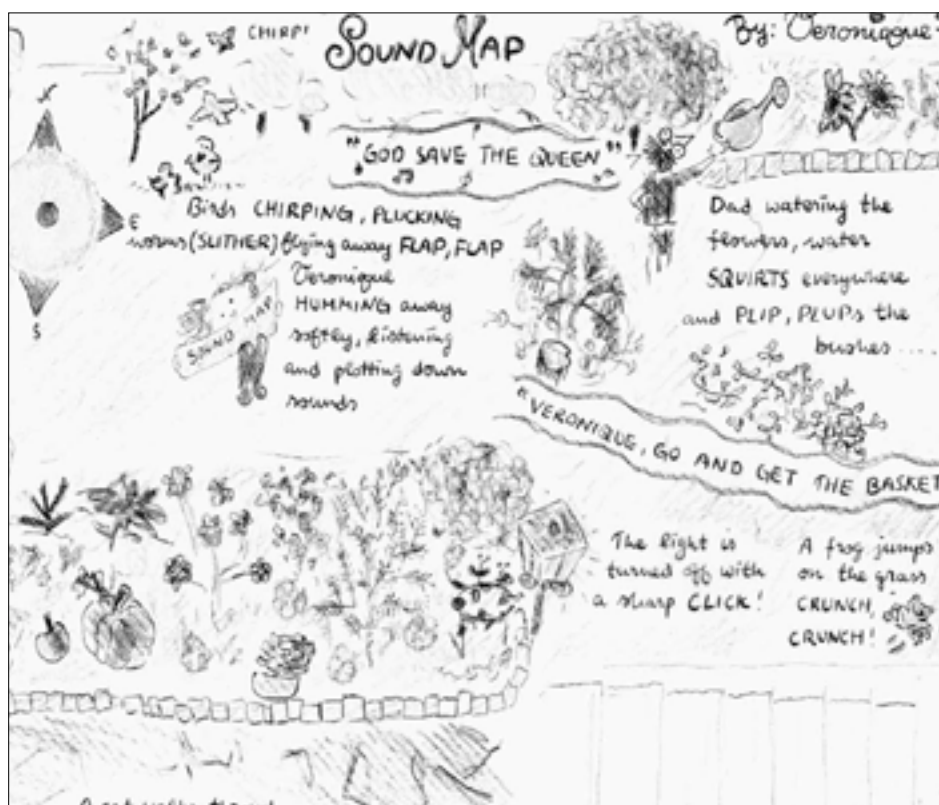 CHIRP!
SOUND MAP
By: Veronique
"GOD SAVE THE QUEEN"
E
S
Birds CHIRPING, PLUCKING
worms (SLITHER) flying away FLAP, FLAP
Veronique
HUMMING away
softly, listening
and plotting down
sounds
SOUND MAP
Dad watering the
flowers, water
SQUIRTS everywhere
and PLIP, PLUPs the
bushes ....
"VERONIQUE, GO AND GET THE BASKET
The light is
turned off with
a sharp CLICK!
A frog jumps
on the grass
CRUNCH,
CRUNCH!